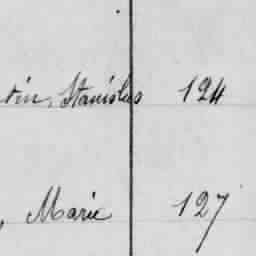 tin, Stanislas 124
, Marie 127